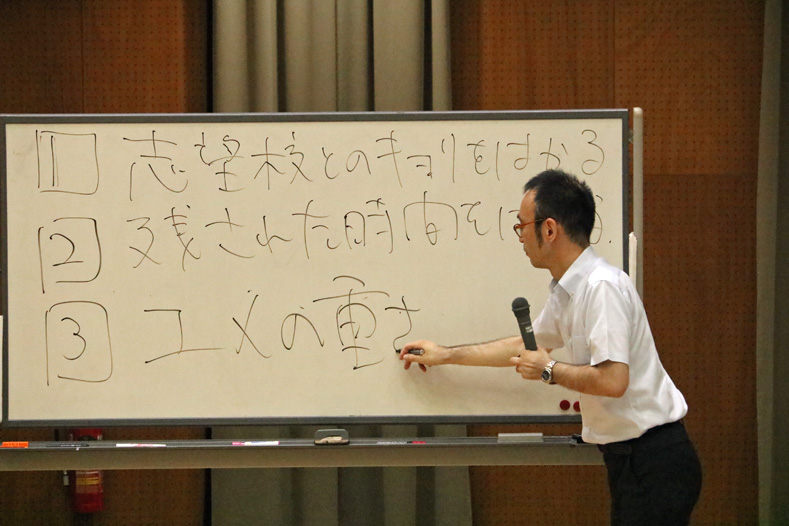 1 志望校とのキョリをはかる
2 残された時間をは
3 ユメの重さ